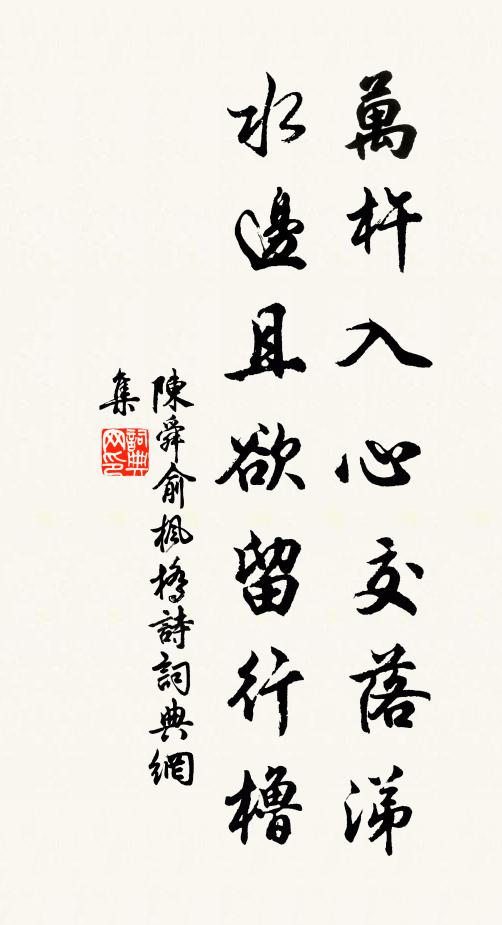 萬杵入心交落涕
水邊且欲留行櫓
陳舜俞楓橋詩詞典網
集
詞典
网印